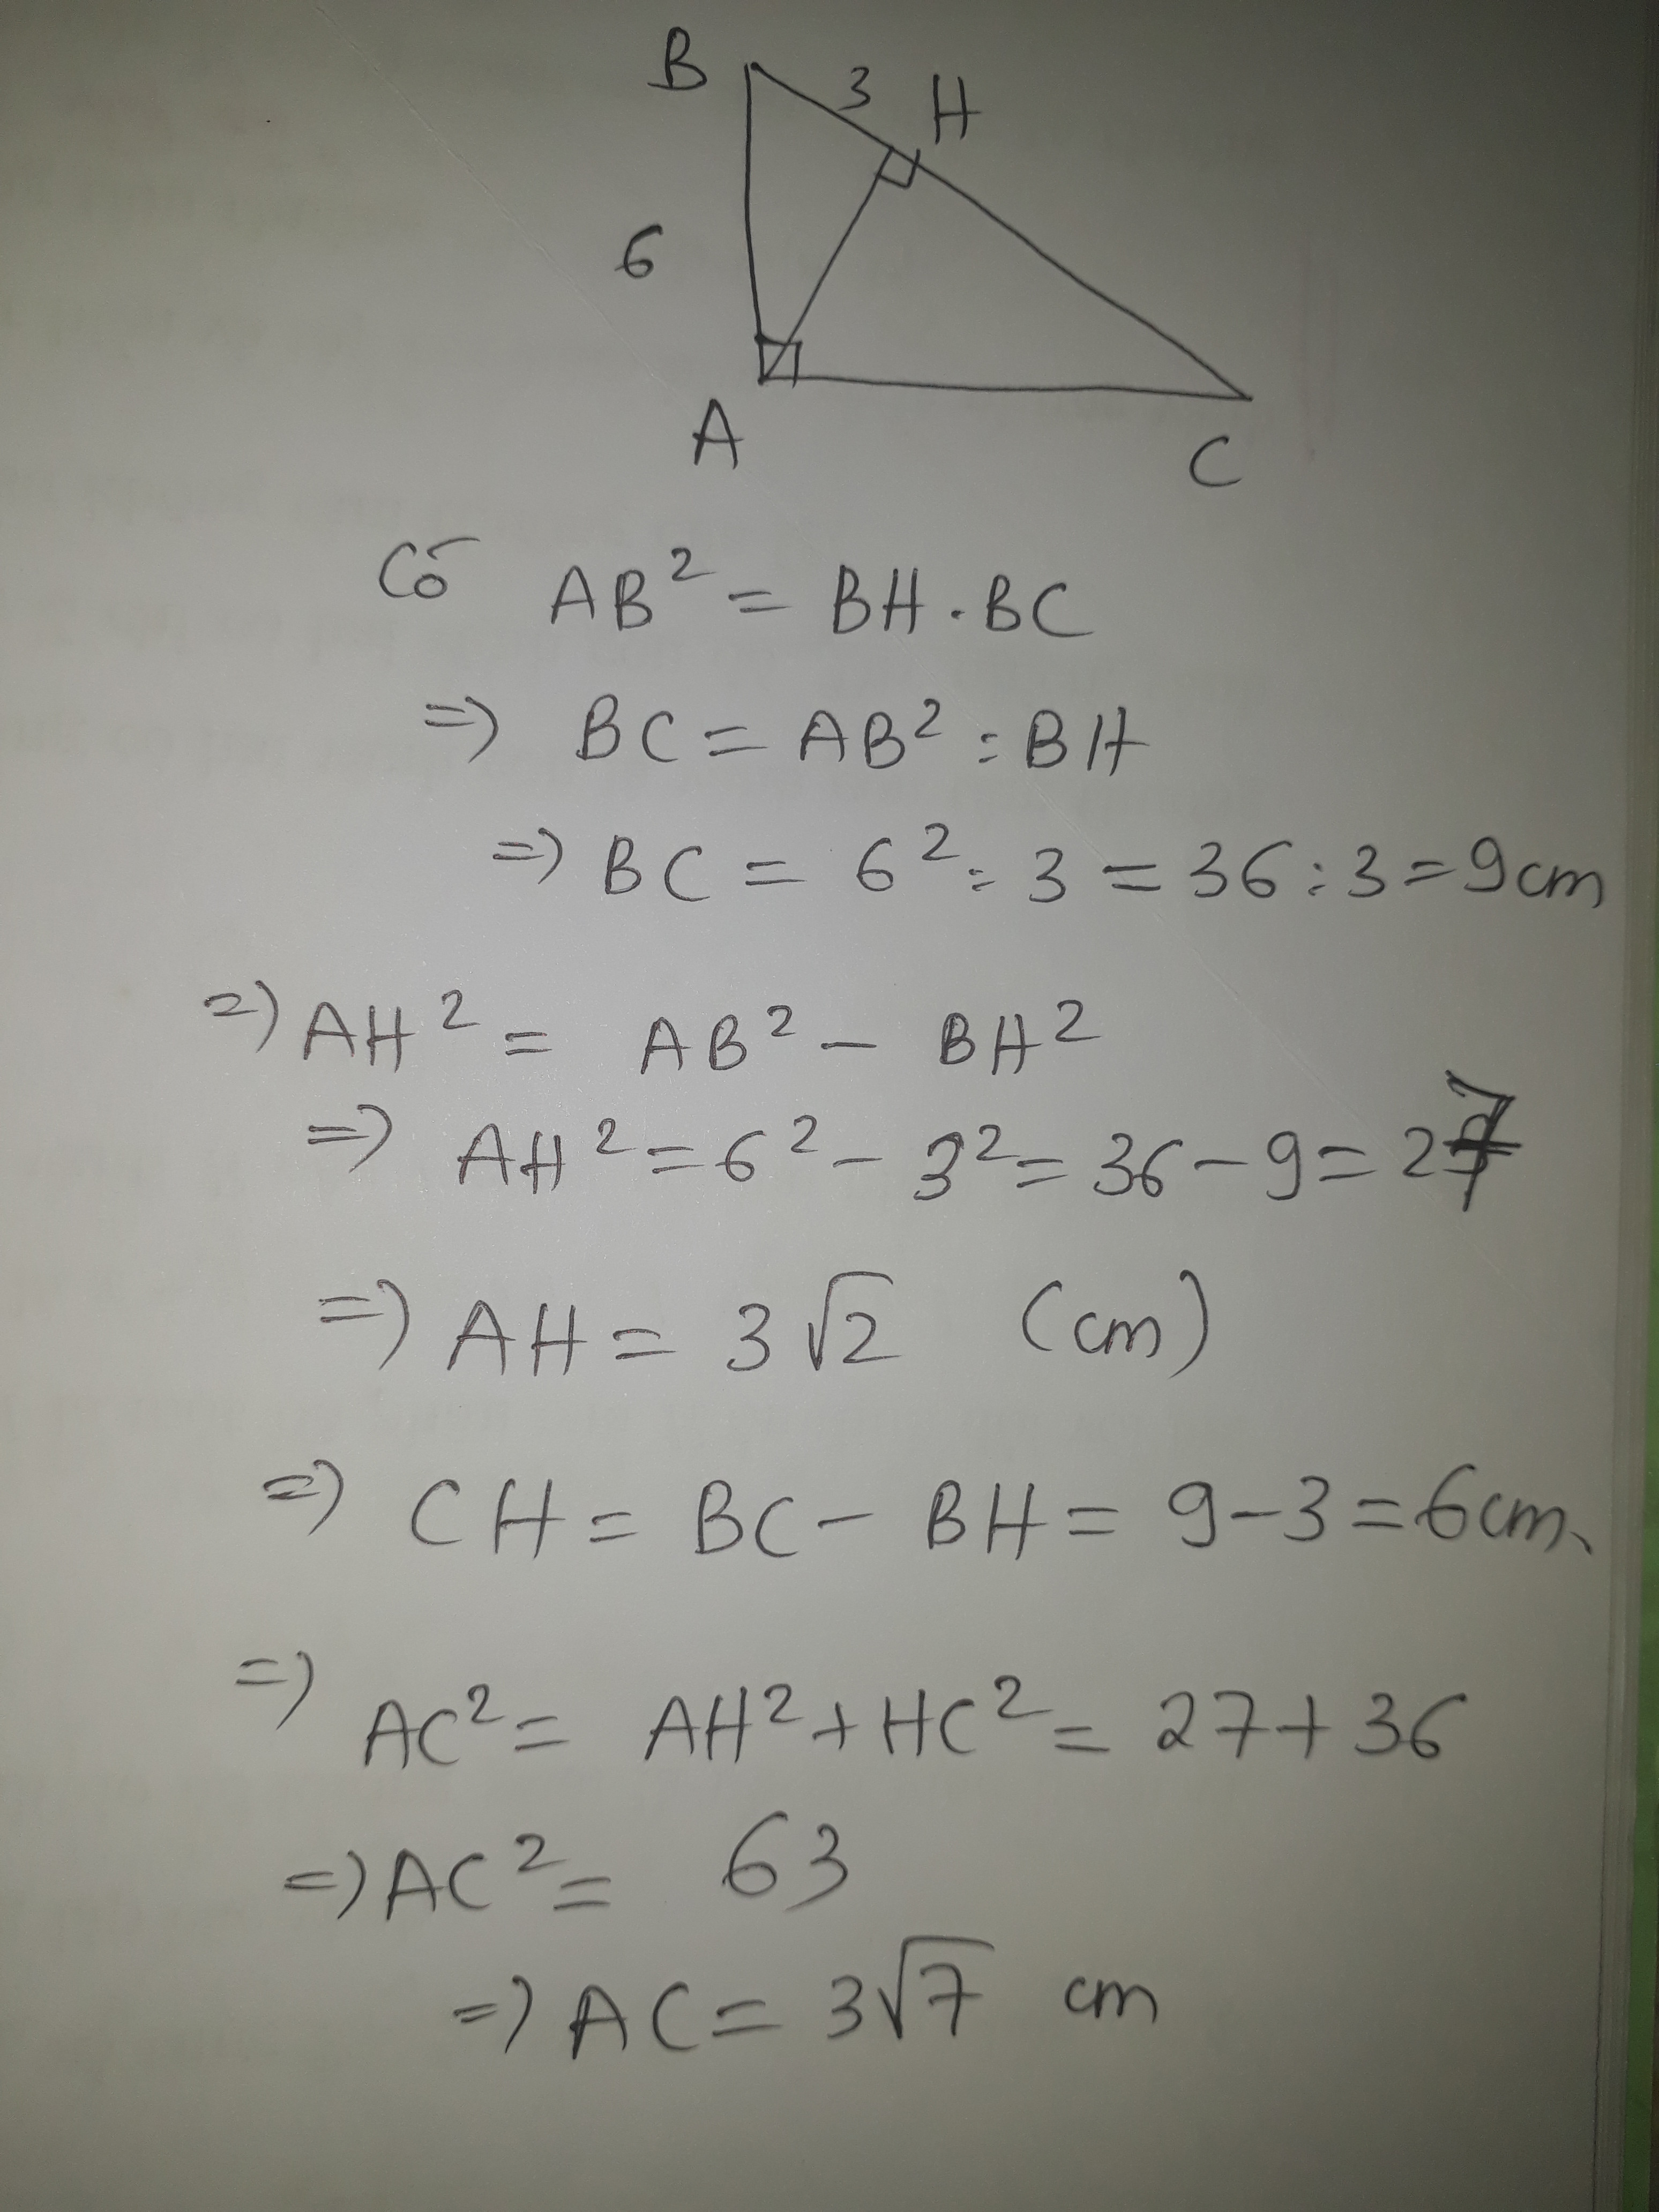 B 3 H
6
A C
Có AB² = BH . BC
=> BC = AB² : BH
=> BC = 6² : 3 = 36 : 3 = 9cm
=> AH² = AB² - BH²
=> AH² = 6² - 3² = 36 - 9 = 27
=> AH = 3√2 (cm)
=> CH = BC - BH = 9 - 3 = 6cm.
=> AC² = AH² + HC² = 27 + 36
=> AC² = 63
=> AC = 3√7 cm